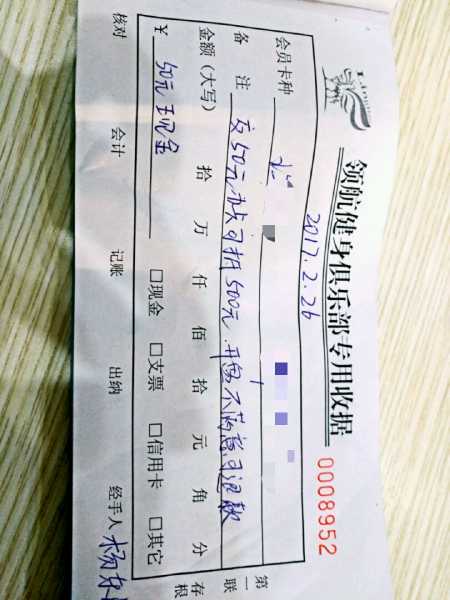 领航健身俱乐部专用收据
2017.2.26
0008952
会员卡种
备 注 交50元办卡可抵500元.开业不满意可退款
金额(大写) 拾 万 仟 佰 拾 元 角 分
¥ 50元现金 □现金 □支票 □信用卡 □其它
核对 会计 记账 出纳 经手人 杨
第一联 存根